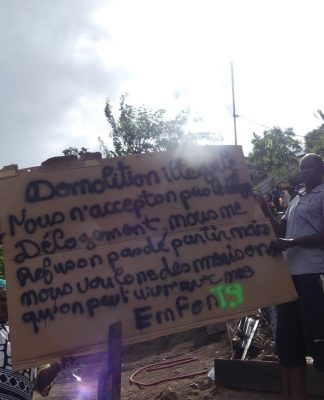 Demolition illégale
Nous n'accepton pas le
Délogement nous ne
Refuson pas dé partir mais
nous voulons des maisons
qu'on peut vivr avec mes
Enfants